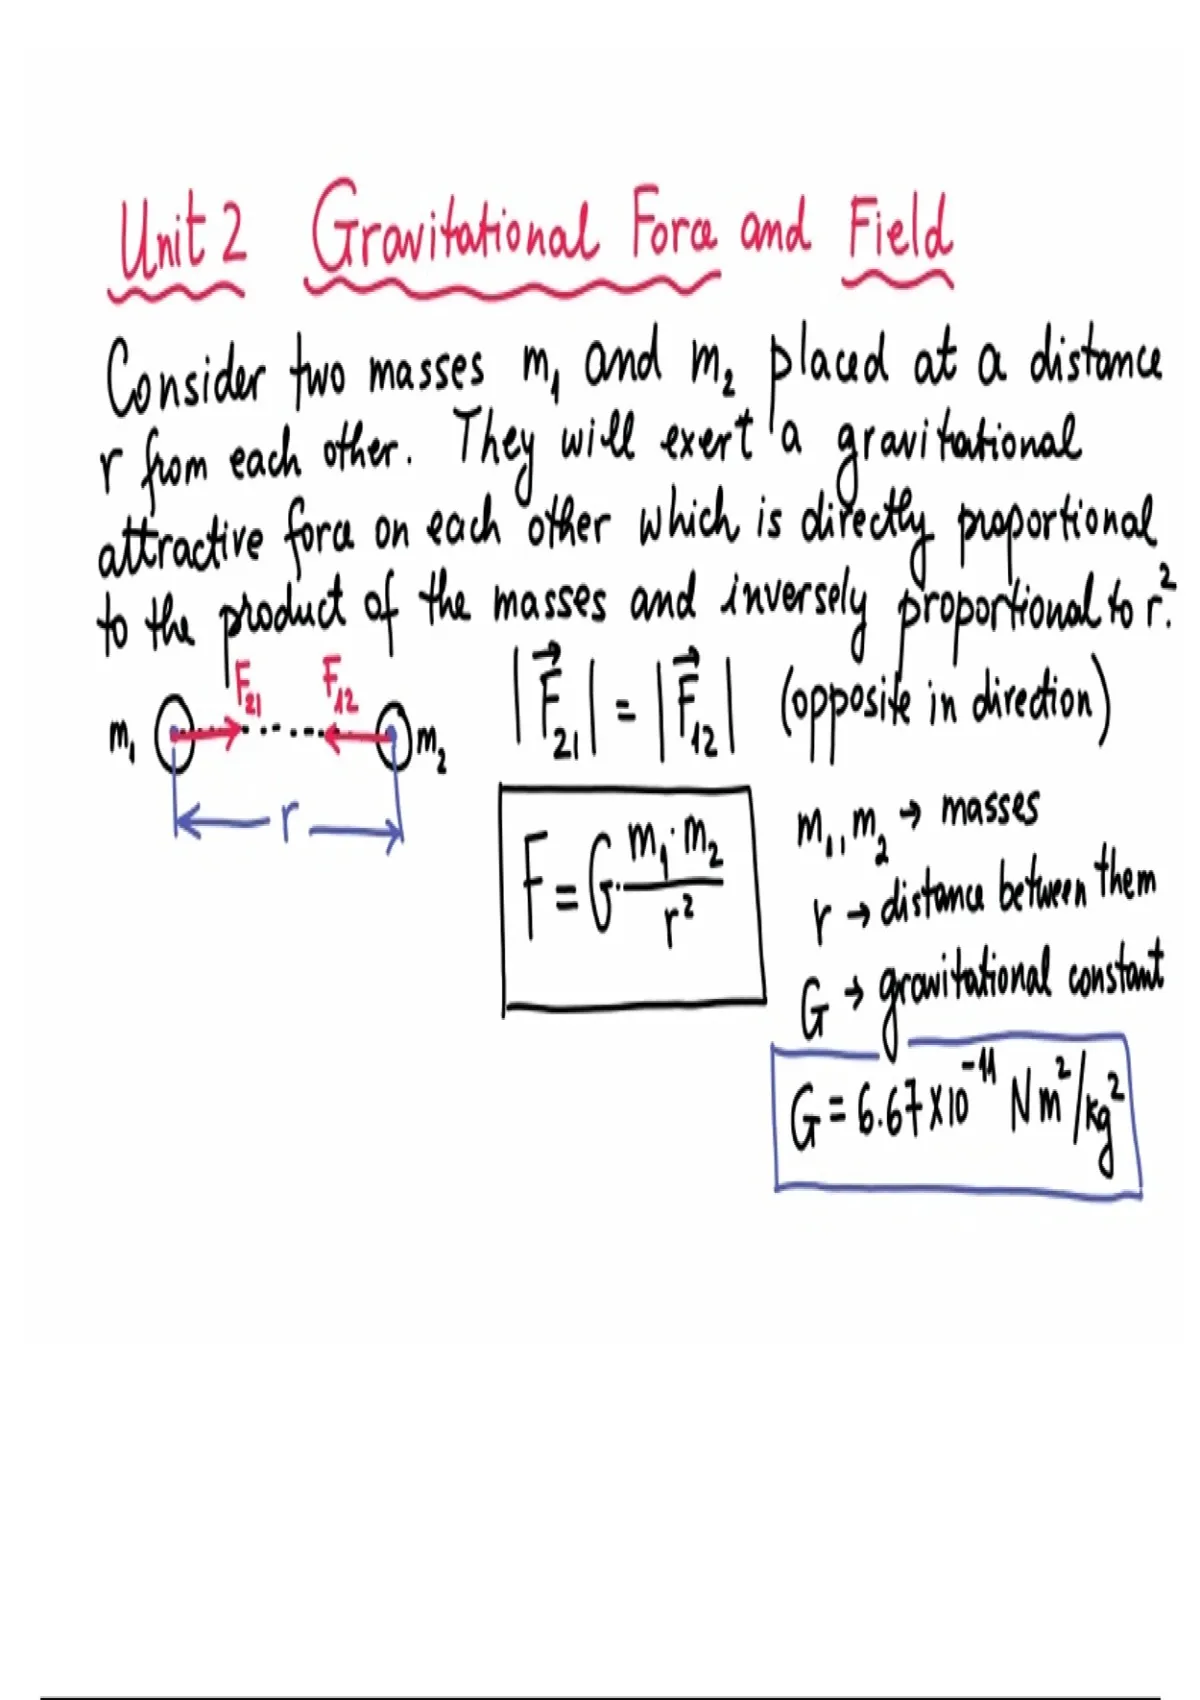 Unit 2 Gravitational Force and Field
Consider two masses m₁ and m₂ placed at a distance
r from each other. They will exert a gravitational
attractive force on each other which is directly proportional
to the product of the masses and inversely proportional to r².
F₂₁ F₁₂
m₁ m₂
r
|F⃗₂₁| = |F⃗₁₂| (opposite in direction)
F = G · m₁ · m₂ / r²
m₁, m₂ → masses
r → distance between them
G → gravitational constant
G = 6.67 x 10⁻¹¹ N m²/kg²